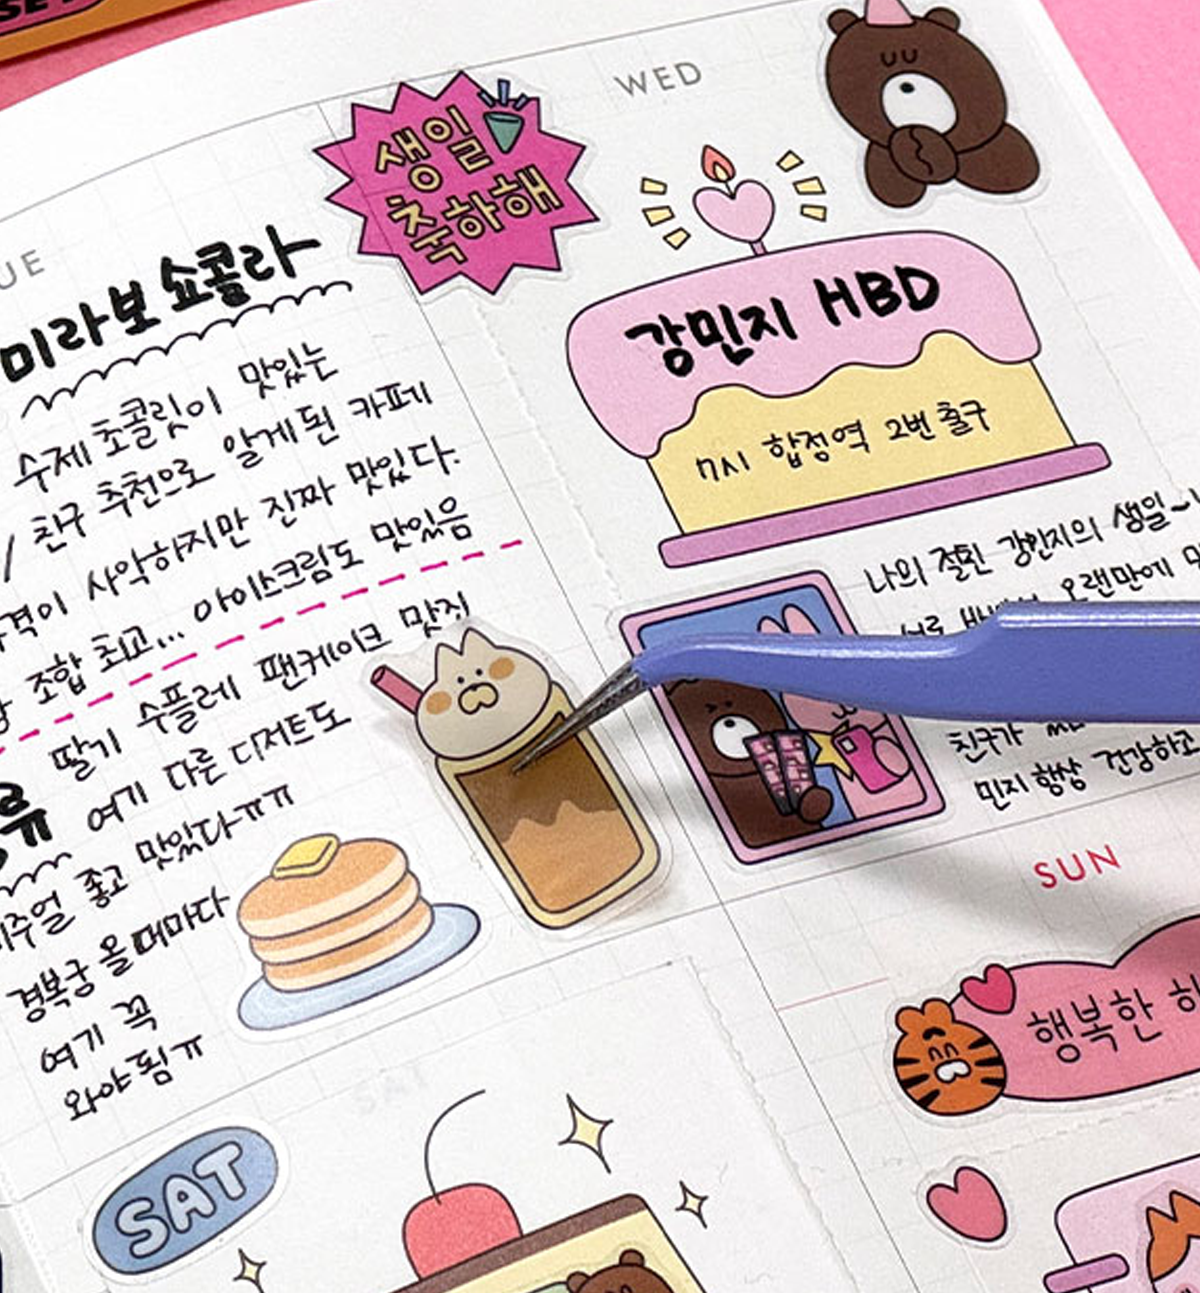 WED
생일
축하해
미라보 쇼콜라
수제 초콜릿이 맛있는
친구 추천으로 알게 된 카페
사악하지만 진짜 맛있다.
조합 최고... 아이스크림도 맛있음
딸기 수플레 팬케이크 맛집
여기 다른 디저트도
좋고 맛있다ㅠㅠ
경복궁 올 때마다
여기 꼭
와야 됨ㅠ
강민지 HBD
7시 합정역 2번 출구
나의 절친 강민지의 생일~
오랜만에
친구가
민지 항상 건강하고
SUN
행복한
SAT
SAT